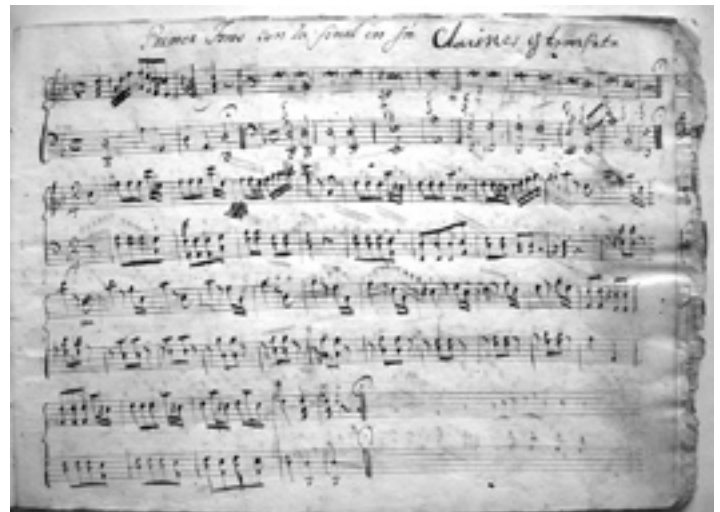 Primer Tono con la final in fa Clarines y trompeta